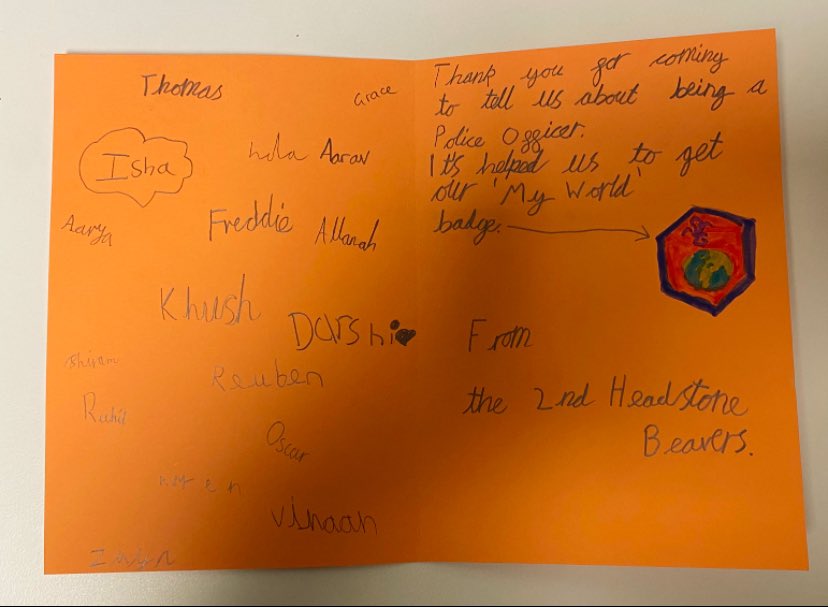 Thomas
Grace
Isha
Lola Aarav
Aarya
Freddie
Allanah
Khush
Darshi
Reuben
Oscar
Vihaan
Thank you for coming
to tell us about being a
Police Officer.
It's helped us to get
our 'My World'
badge.
From
the 2nd Headstone
Beavers.